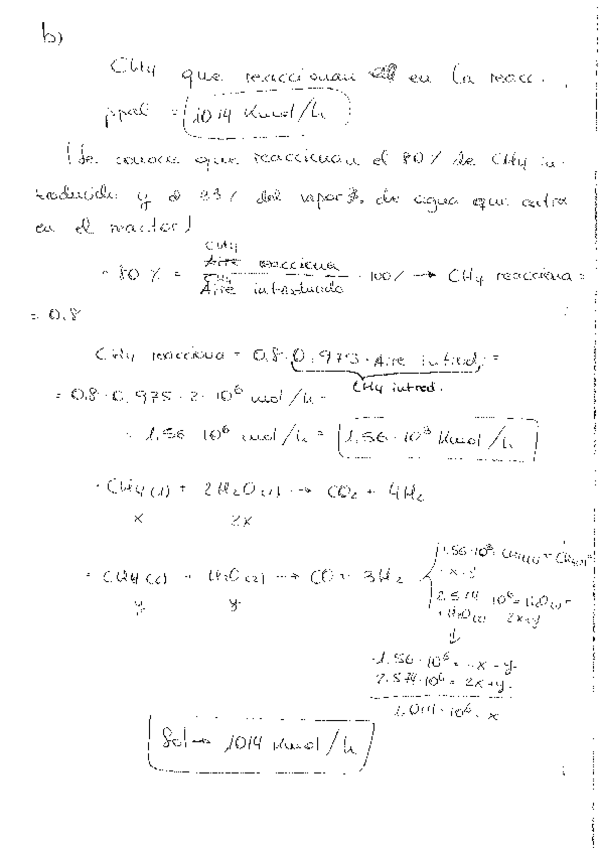 b)
CH4 que reaccionan en la reacc.
ppal = 1014 Kmol/h
¡Se conoce que reaccionan el 80% de CH4 in-
troducido y el 33% del vapor de agua que entra
en el reactor!
CH4
· 80 % = Aire reacciona / CH4 Aire introducido · 100% → CH4 reacciona =
= 0.8
CH4 reacciona = 0.8 · 0.975 · Aire introd. =
CH4 introd.
= 0.8 · 0.975 · 2 · 10⁶ mol/h =
= 1.56 · 10⁶ mol/h = 1.56 · 10³ Kmol/h
· CH4 (1) + 2H2O (1) → CO2 + 4H2
x 2x
· CH4 (2) + H2O (2) → CO + 3H2
y y
1.56 · 10⁶ = CH4(1) + CH4(2)
x y
2.574 · 10⁶ = H2O (1) +
+ H2O (2) 2x+y
↓
-1.56 · 10⁶ = -x - y
2.574 · 10⁶ = 2x + y
1.014 · 10⁶ = x
Sol → 1014 Kmol/h